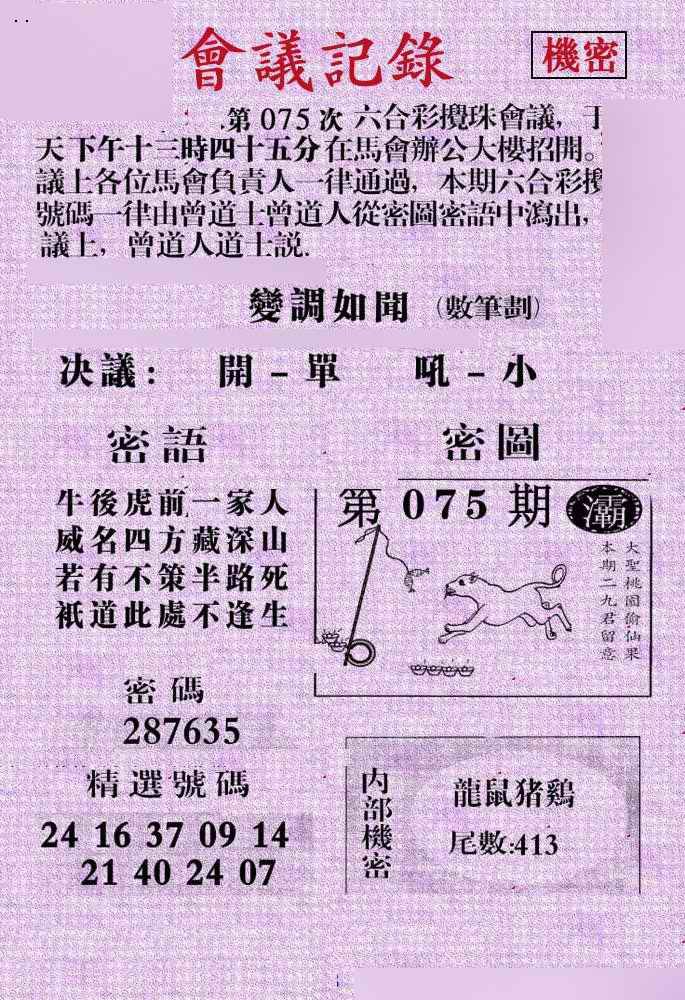 會議記錄
機密
第 075 次 六合彩攪珠會議，于
天下午十三時四十五分在馬會辦公大樓招開。
議上各位馬會負責人一律通過，本期六合彩攪
號碼一律由曾道士曾道人從密圖密語中瀉出，
議上，曾道人道士説.
變調如聞（數筆劃）
决議： 開－單 吼－小
密語
牛後虎前一家人
威名四方藏深山
若有不策半路死
衹道此處不逢生
密圖
第075期 灞
大聖桃園偷仙果
本期二九君留意
密碼
287635
精選號碼
24 16 37 09 14
21 40 24 07
内部機密
龍鼠猪鷄
尾數:413